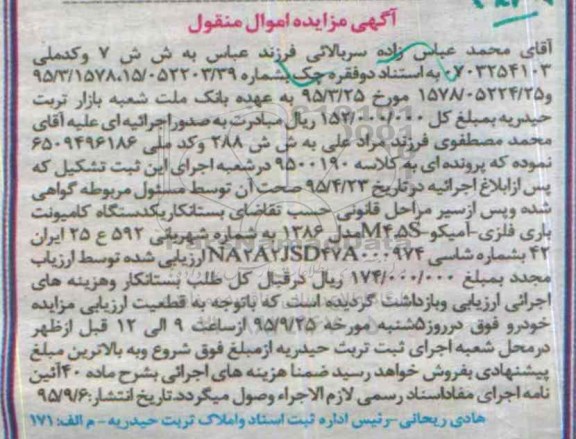 آگهی مزایده اموال منقول
آقای محمد عباس زاده سربالائی فرزند عباس به ش ش ۷ وکدملی
۰۷۰۳۲۵۴۱۰۳ به استناد دوفقره چک بشماره ۹۵/۳/۱۵۷۸،۱۵/۰۵۲۲۰۳/۳۹
و۱۵۷۸/۰۵۲۲۴/۲۵ مورخ ۹۵/۳/۲۵ به عهده بانک ملت شعبه بازار تربت
حیدریه بمبلغ کل ۱۵۲/۰۰۰/۰۰۰ ریال مبادرت به صدوراجرائیه ای علیه آقای
محمد مصطفوی فرزند مراد علی به ش ش ۲۸۸ وکد ملی ۶۵۰۹۴۹۶۱۸۶
نموده که پرونده ای به کلاسه ۹۵۰۰۱۹۰ درشعبه اجرای این ثبت تشکیل که
پس ازابلاغ اجرائیه درتاریخ ۹۵/۴/۲۳ صحت آن توسط مسئول مربوطه گواهی
شده وپس ازسیر مراحل قانونی حسب تقاضای بستانکاریکدستگاه کامیونت
باری فلزی-آمیکو-M۴٫۵Sمدل ۱۳۸۶ به شماره شهربانی ۵۹۲ ع ۲۵ ایران
۴۲ بشماره شاسی NA۲A۲JSD۴۷A۰۰۰۹۷۴ارزیابی شده توسط ارزیاب
مجدد بمبلغ ۱۷۴/۰۰۰/۰۰۰ ریال درقبال کل طلب بستانکار وهزینه های
اجرائی ارزیابی وبازداشت گردیده است که باتوجه به قطعیت ارزیابی مزایده
خودرو فوق درروز۵شنبه مورخه ۹۵/۹/۲۵ ازساعت ۹ الی ۱۲ قبل ازظهر
درمحل شعبه اجرای ثبت تربت حیدریه ازمبلغ فوق شروع وبه بالاترین مبلغ
پیشنهادی بفروش خواهد رسید ضمنا هزینه های اجرائی بشرح ماده ۴۰آئین
نامه اجرای مفاداسناد رسمی لازم الاجراء وصول میگردد.تاریخ انتشار:۹۵/۹/۶
هادی ریحانی -رئیس اداره ثبت اسناد واملاک تربت حیدریه- م الف: ۱۷۱